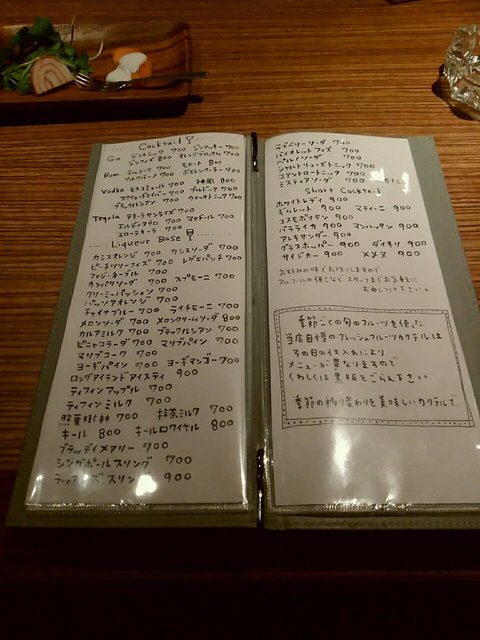 Cocktail
Gin ジントニック 700 ジンリッキー 700
ジンフィズ 800 オレンジブロッサム 700
Rum ラムコーク 700 モヒート 800
ソルクバーノ 700 ボストンクーラー 700
Vodka モスコミュール 700 神風 800
スクリュードライバー 700 ブルドッグ 700
ブラックルシアン 700 ウォッカトニック 700
Tequla テキーラサンライズ 700 マタドール 700
エルディアブロ 700
スローテキーラ 700
Liqueur Base
カシスオレンジ 700 カシスソーダ 700
ピーチツリーフィズ 700 レゲエパンチ 700
ファジーネーブル 700
カンパリソーダ 700 スプモーニ 700
クリーミーパッション 700
パッソアオレンジ 700
チャイナブルー 700 ライチモーニ 700
メロンソーダ 700 メロンクリームソーダ 800
カルアミルク 700 ブラックルシアン 700
ピニャコラーダ 700 マリブパイン 700
マリブコーク 700
ヨーギパイン 700 ヨーギマンゴー 700
ロングアイランドアイスティ 900
ティフィンアップル 700
ティフィンミルク 700
照葉樹林 700 抹茶ミルク 700
キール 800 キールロワイヤル 800
ブラッディメアリー 700
シンガポールスリング 700
ラッフルズスリング 900
ラズベリーソーダ 700
バイオレットフィズ 700
ペルノソーダ 700
シャルトリューズトニック 700
ココナツトロート 700
ミスティアソーダ 700 etc
Short Cocktail
ホワイトレディ 900
ギムレット 900 マティーニ 900
コスモポリタン 900
バラライカ 900 マンハッタン 900
アレキサンダー 900
グラスホッパー 900 ダイキリ 900
サイドカー 900 メメヌ 900
お好みの味でお作りしますので
アルコールの強さなど スタッフまでお気軽に
お申しつけ下さい。
季節ごとの旬のフルーツを使った
当店自慢のフレッシュフルーツカクテルは
その日の仕入れにより
メニューが異なりますので
くわしくは黒板をごらん下さい
季節の移り変わりを美味しいカクテルで